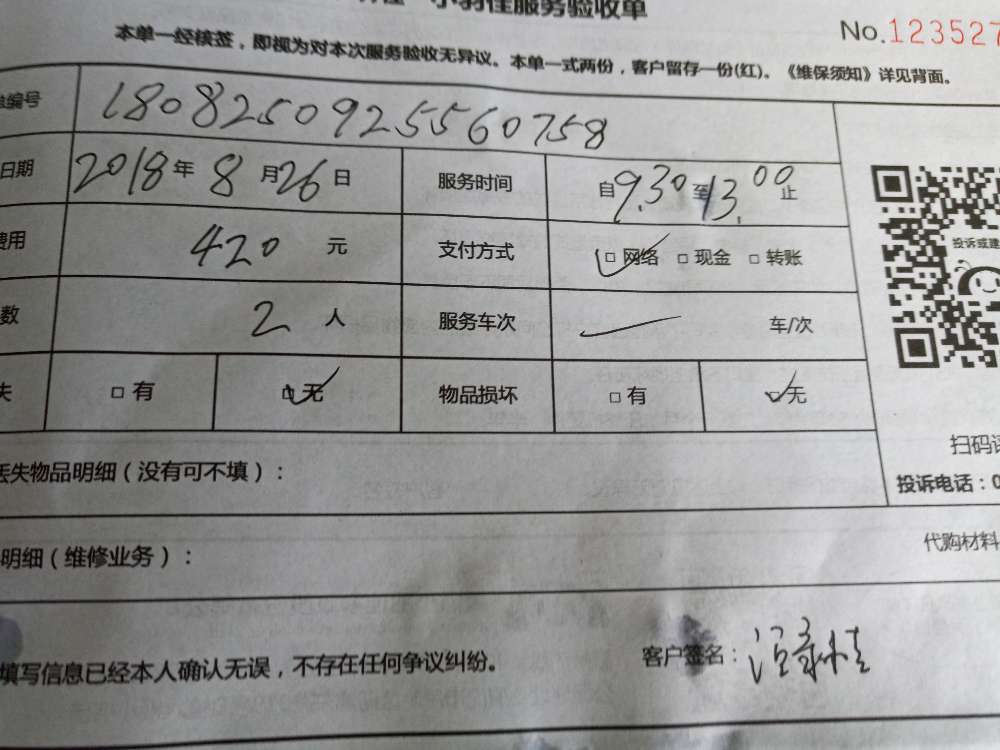 服务验收单
No.123527
本单一经核签，即视为对本次服务验收无异议。本单一式两份，客户留存一份(红)。《维保须知》详见背面。
编号 18082509255560758
日期 2018年8月26日 服务时间 自9.30至13.00止
费用 420 元 支付方式 网络 现金 转账
数 2 人 服务车次 车/次
失 有 无 物品损坏 有 无
投诉或建
扫码
丢失物品明细（没有可不填）：
投诉电话：0
明细（维修业务）：
代购材料
填写信息已经本人确认无误，不存在任何争议纠纷。
客户签名：